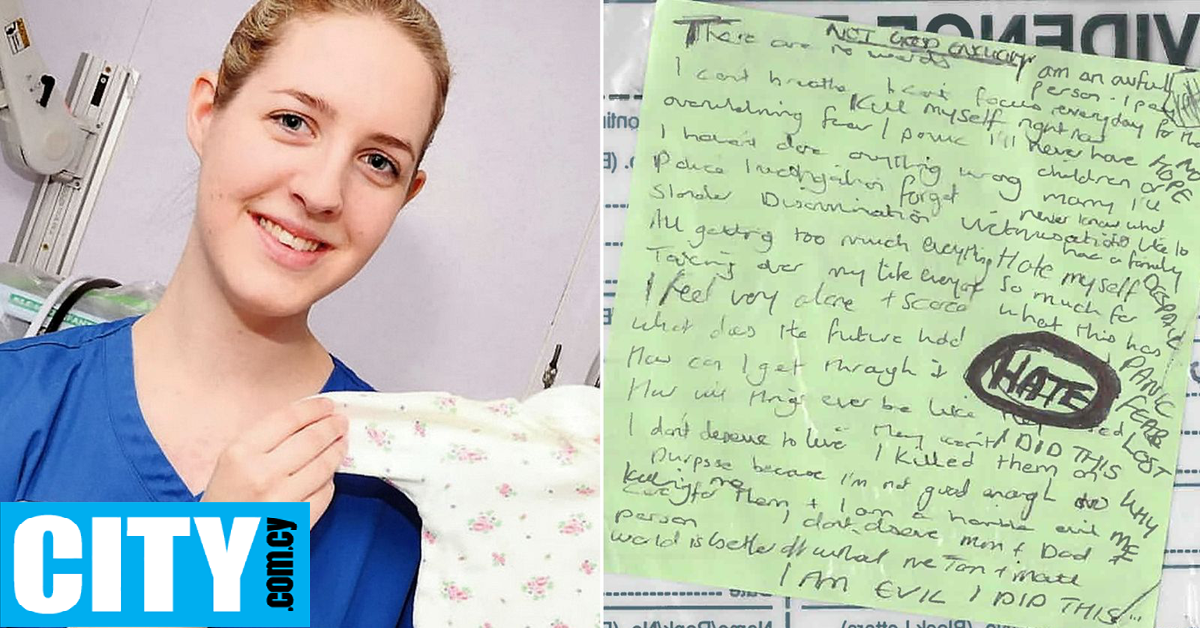 CITY
.com.cy
EVIDENCE
NOT GOOD ENOUGH
There are no words
I am an awful person - I pay
every day for that
I can't breathe I can't focus
Kill myself right now
overwhelming fear / panic
I'll never have
HOPE
I haven't done anything wrong
children or marry I'll
never know what
it's like to
have a family
Police investigation forget
Slander Discrimination Victimisation
All getting too much everything
Hate myself so much for
what this has
DESPAIR
PANIC
FEAR
LOST
Taking over my life everyday
I feel very alone + scared
What does the future hold
How can I get through it
How will things ever be like
HATE
they won't
I DID THIS
WHY
ME
I don't deserve to live
I killed them on
purpose because I'm not good enough
to care for them + I am a horrible evil
person
I don't deserve mum + Dad
world is better off without me
I AM EVIL I DID THIS